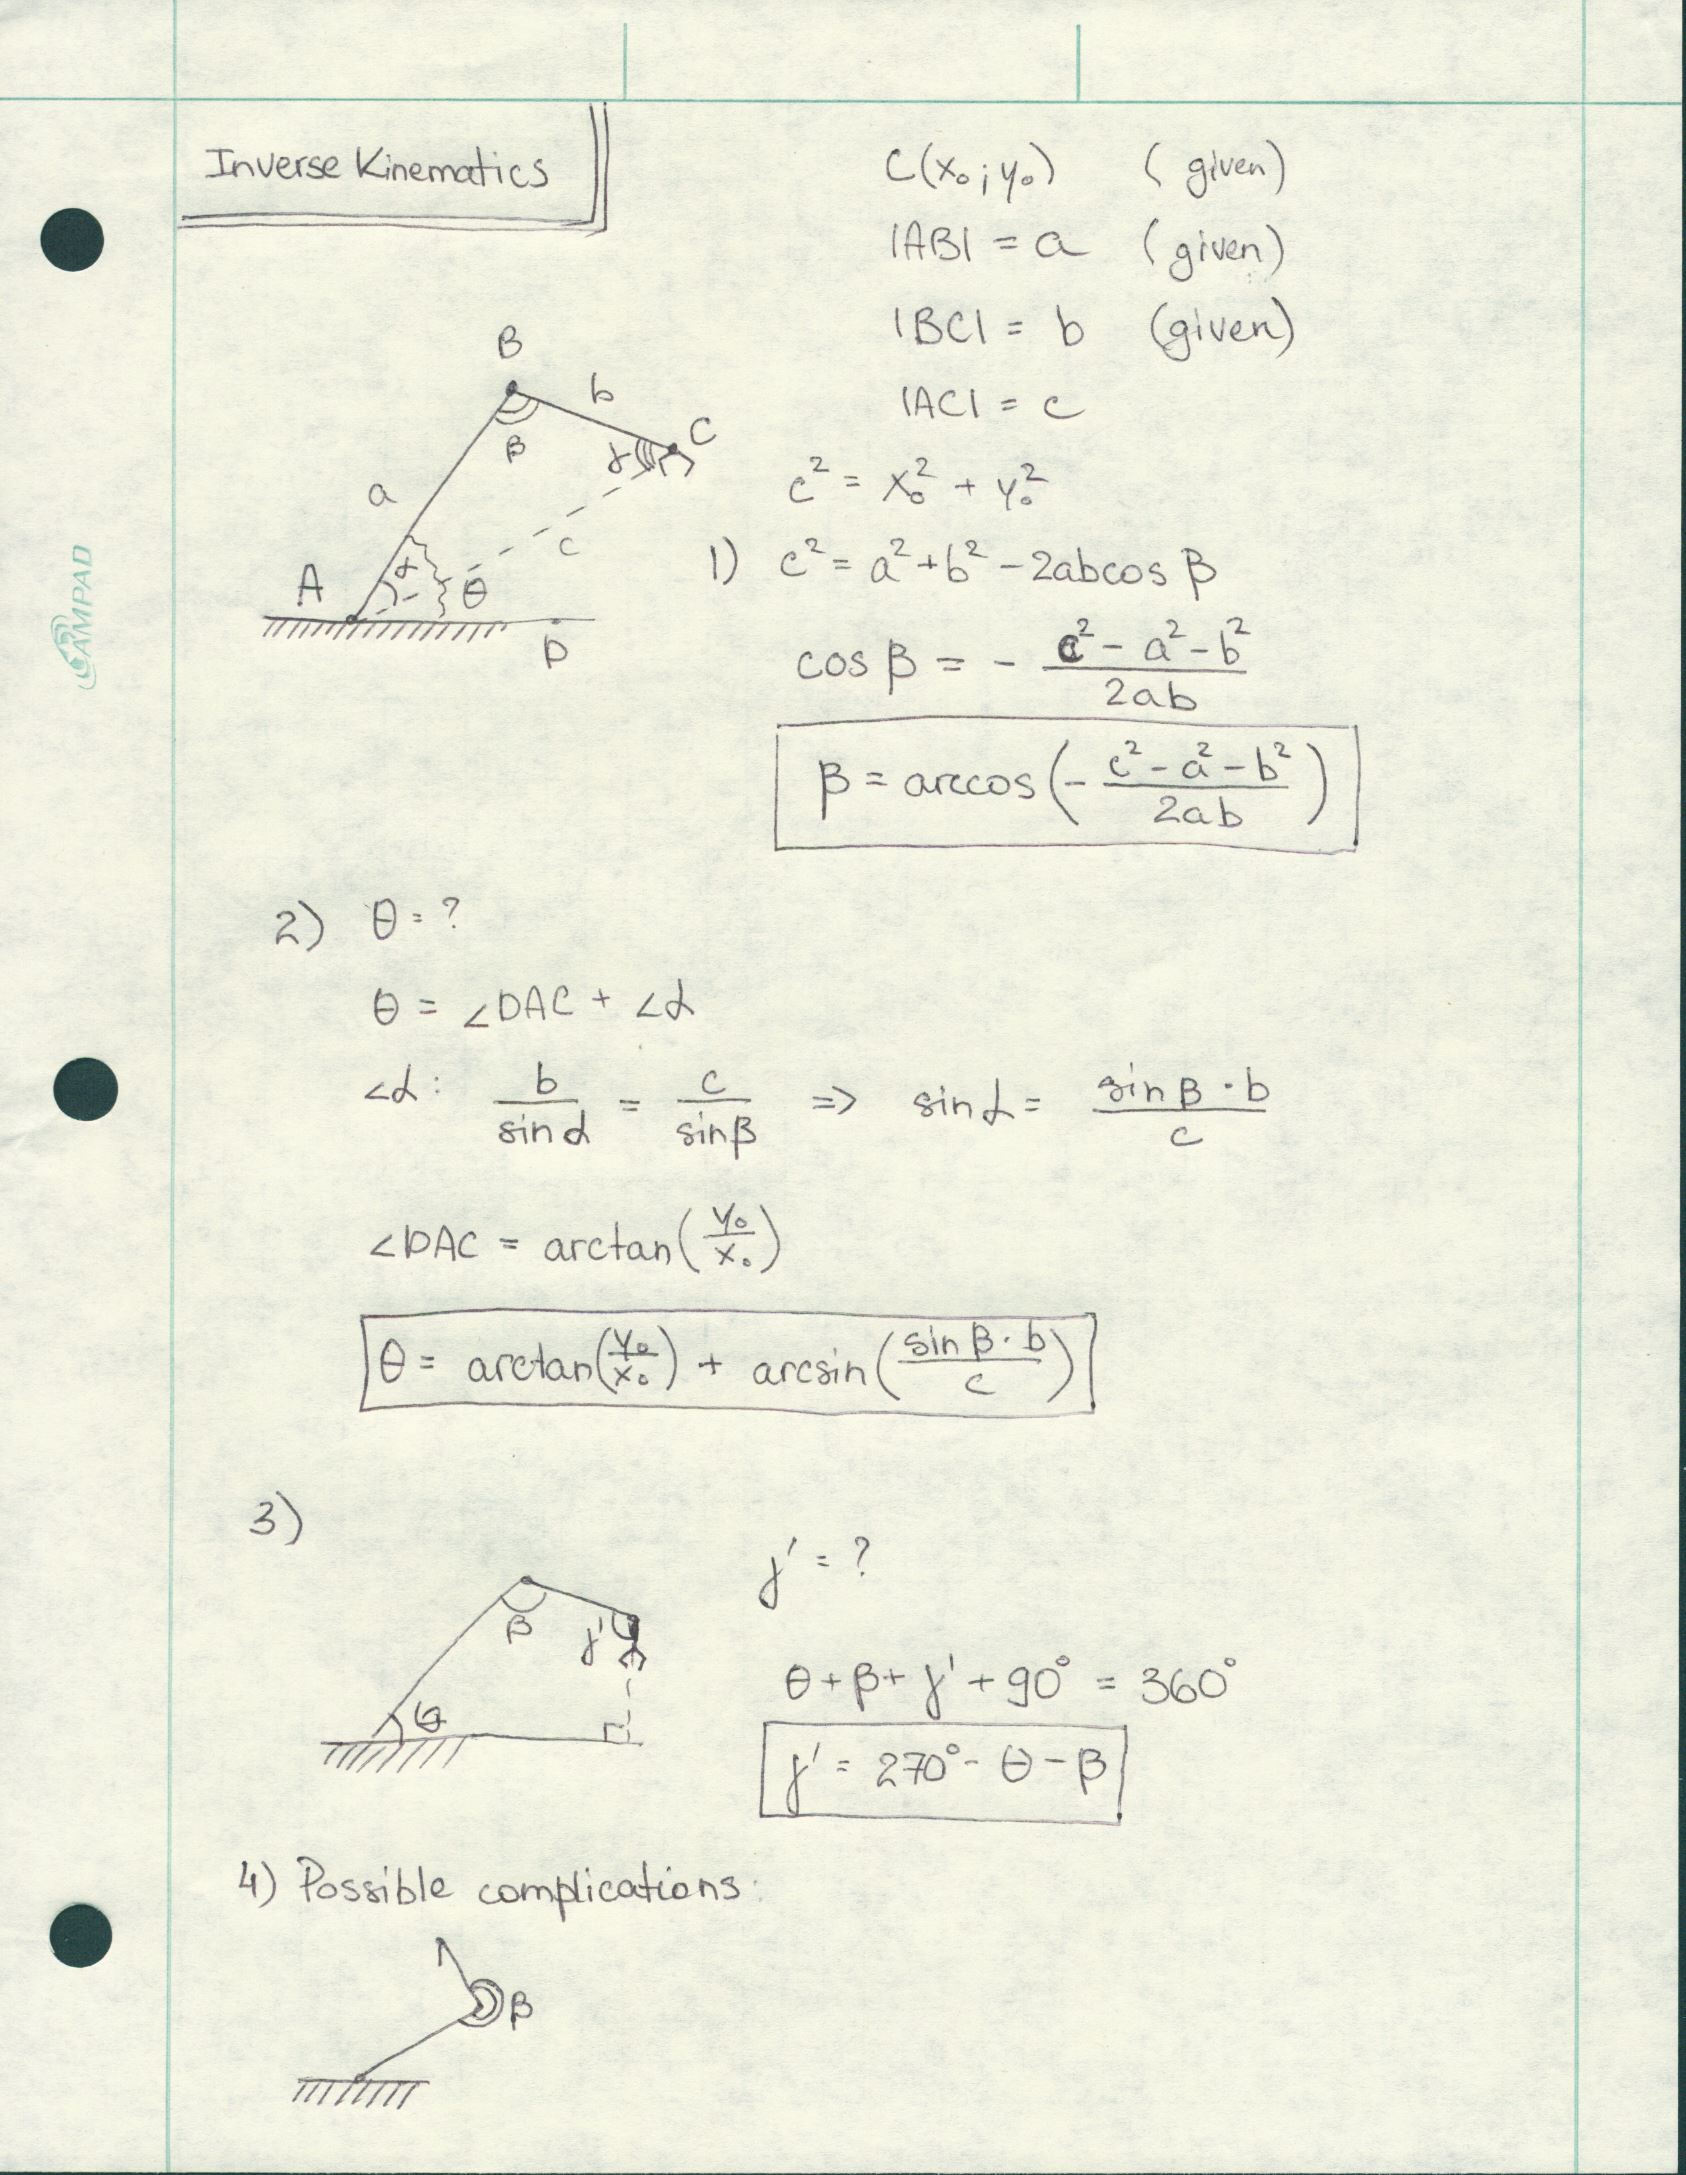 Inverse Kinematics
C(x₀; y₀) (given)
|AB| = a (given)
|BC| = b (given)
|AC| = c
B
b
C
β
γ
a
c
A
α
θ
D
c² = x₀² + y₀²
1) c² = a² + b² - 2abcos β
cos β = - (c² - a² - b²)/(2ab)
β = arccos(- (c² - a² - b²)/(2ab))
AMPAD
2) θ = ?
θ = ∠DAC + ∠α
∠α: b/sin α = c/sin β => sin α = (sin β · b)/c
∠DAC = arctan(y₀/x₀)
θ = arctan(y₀/x₀) + arcsin((sin β · b)/c)
3)
γ' = ?
β
γ'
θ
θ + β + γ' + 90° = 360°
γ' = 270° - θ - β
4) Possible complications:
β